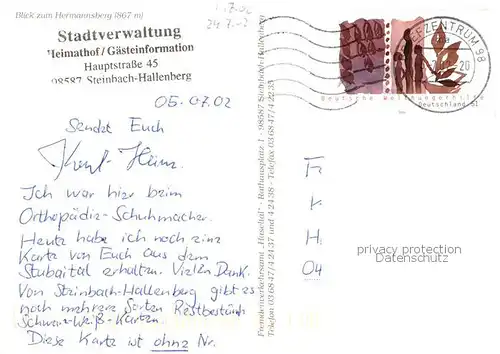 Blick zum Hermannsberg (867 m)
Stadtverwaltung
Heimathof / Gästeinformation
Hauptstraße 45
98587 Steinbach-Hallenberg
05.07.02
Sendet Euch
Ich war hier beim
Orthopädie-Schuhmacher.
Heute habe ich noch eine
Karte von Euch aus dem
Stubaital erhalten. Vielen Dank.
Von Steinbach-Hallenberg gibt es
noch mehrere Sorten Restbestände
Schwarz-Weiß-Karten.
Diese Karte ist ohne Nr.
Fremdenverkehrsamt „Haseltal" - Rathausplatz 1 - 98587 Steinbach-Hallenberg
Telefon 03 68 47/4 24 37 und 4 24 38 - Telefax 03 68 47/4 22 35
EFZENTRUM 98
20
Deutsche Welthungerhilfe
Deutschland 51
F
K
H
04
privacy protection
Datenschutz